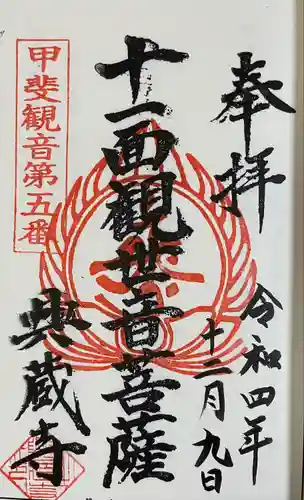 奉拝
令和四年
十二月九日
十一面観世音菩薩
甲斐観音第五番
典蔵寺